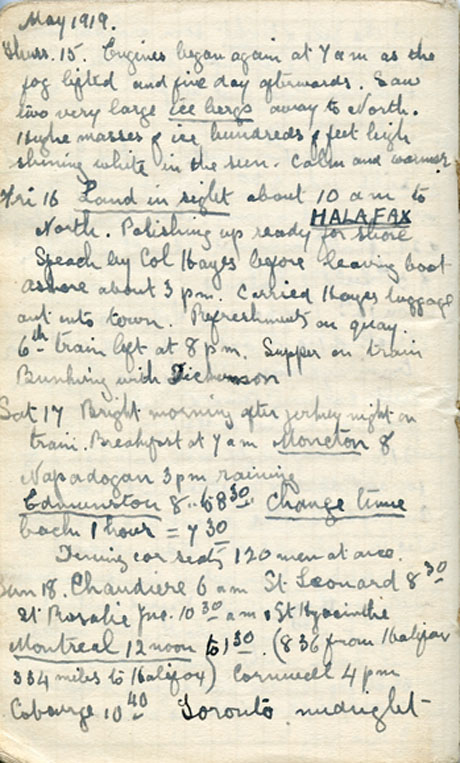 May 1919.
Thurs. 15. Engines began again at 7 am as the
fog lifted and fine day afterwards. Saw
two very large ice bergs away to North.
Hughe masses of ice hundreds of feet high
shining white in the sun. Calm and warmer
Fri 16 Land in sight about 10 am to
HALAFAX
North. Polishing up ready for shore
Speach by Col Hayes before leaving boat
ashore about 3 pm. Carried Hayes luggage
out into town. Refreshments on quay.
6th train left at 8 pm. Supper on train
Bunking with Dickenson
Sat 17 Bright morning after jerkey night on
train. Breakfast at 7 am Moncton 8
Napadogan 3 pm raining
Edmunston 8 to 8 30. Change time
back 1 hour = 7 30
Dining car seats 120 men at once.
Sun 18. Chaudiere 6 am St Leonard 8 30
St Rosalie Jnc. 10 30 am, St Hyacinthe
Montreal 12 noon to 1 30. (836 from Halifax
334 miles to Halifax) Cornwell 4 pm
Cobourge 10 40 Toronto midnight